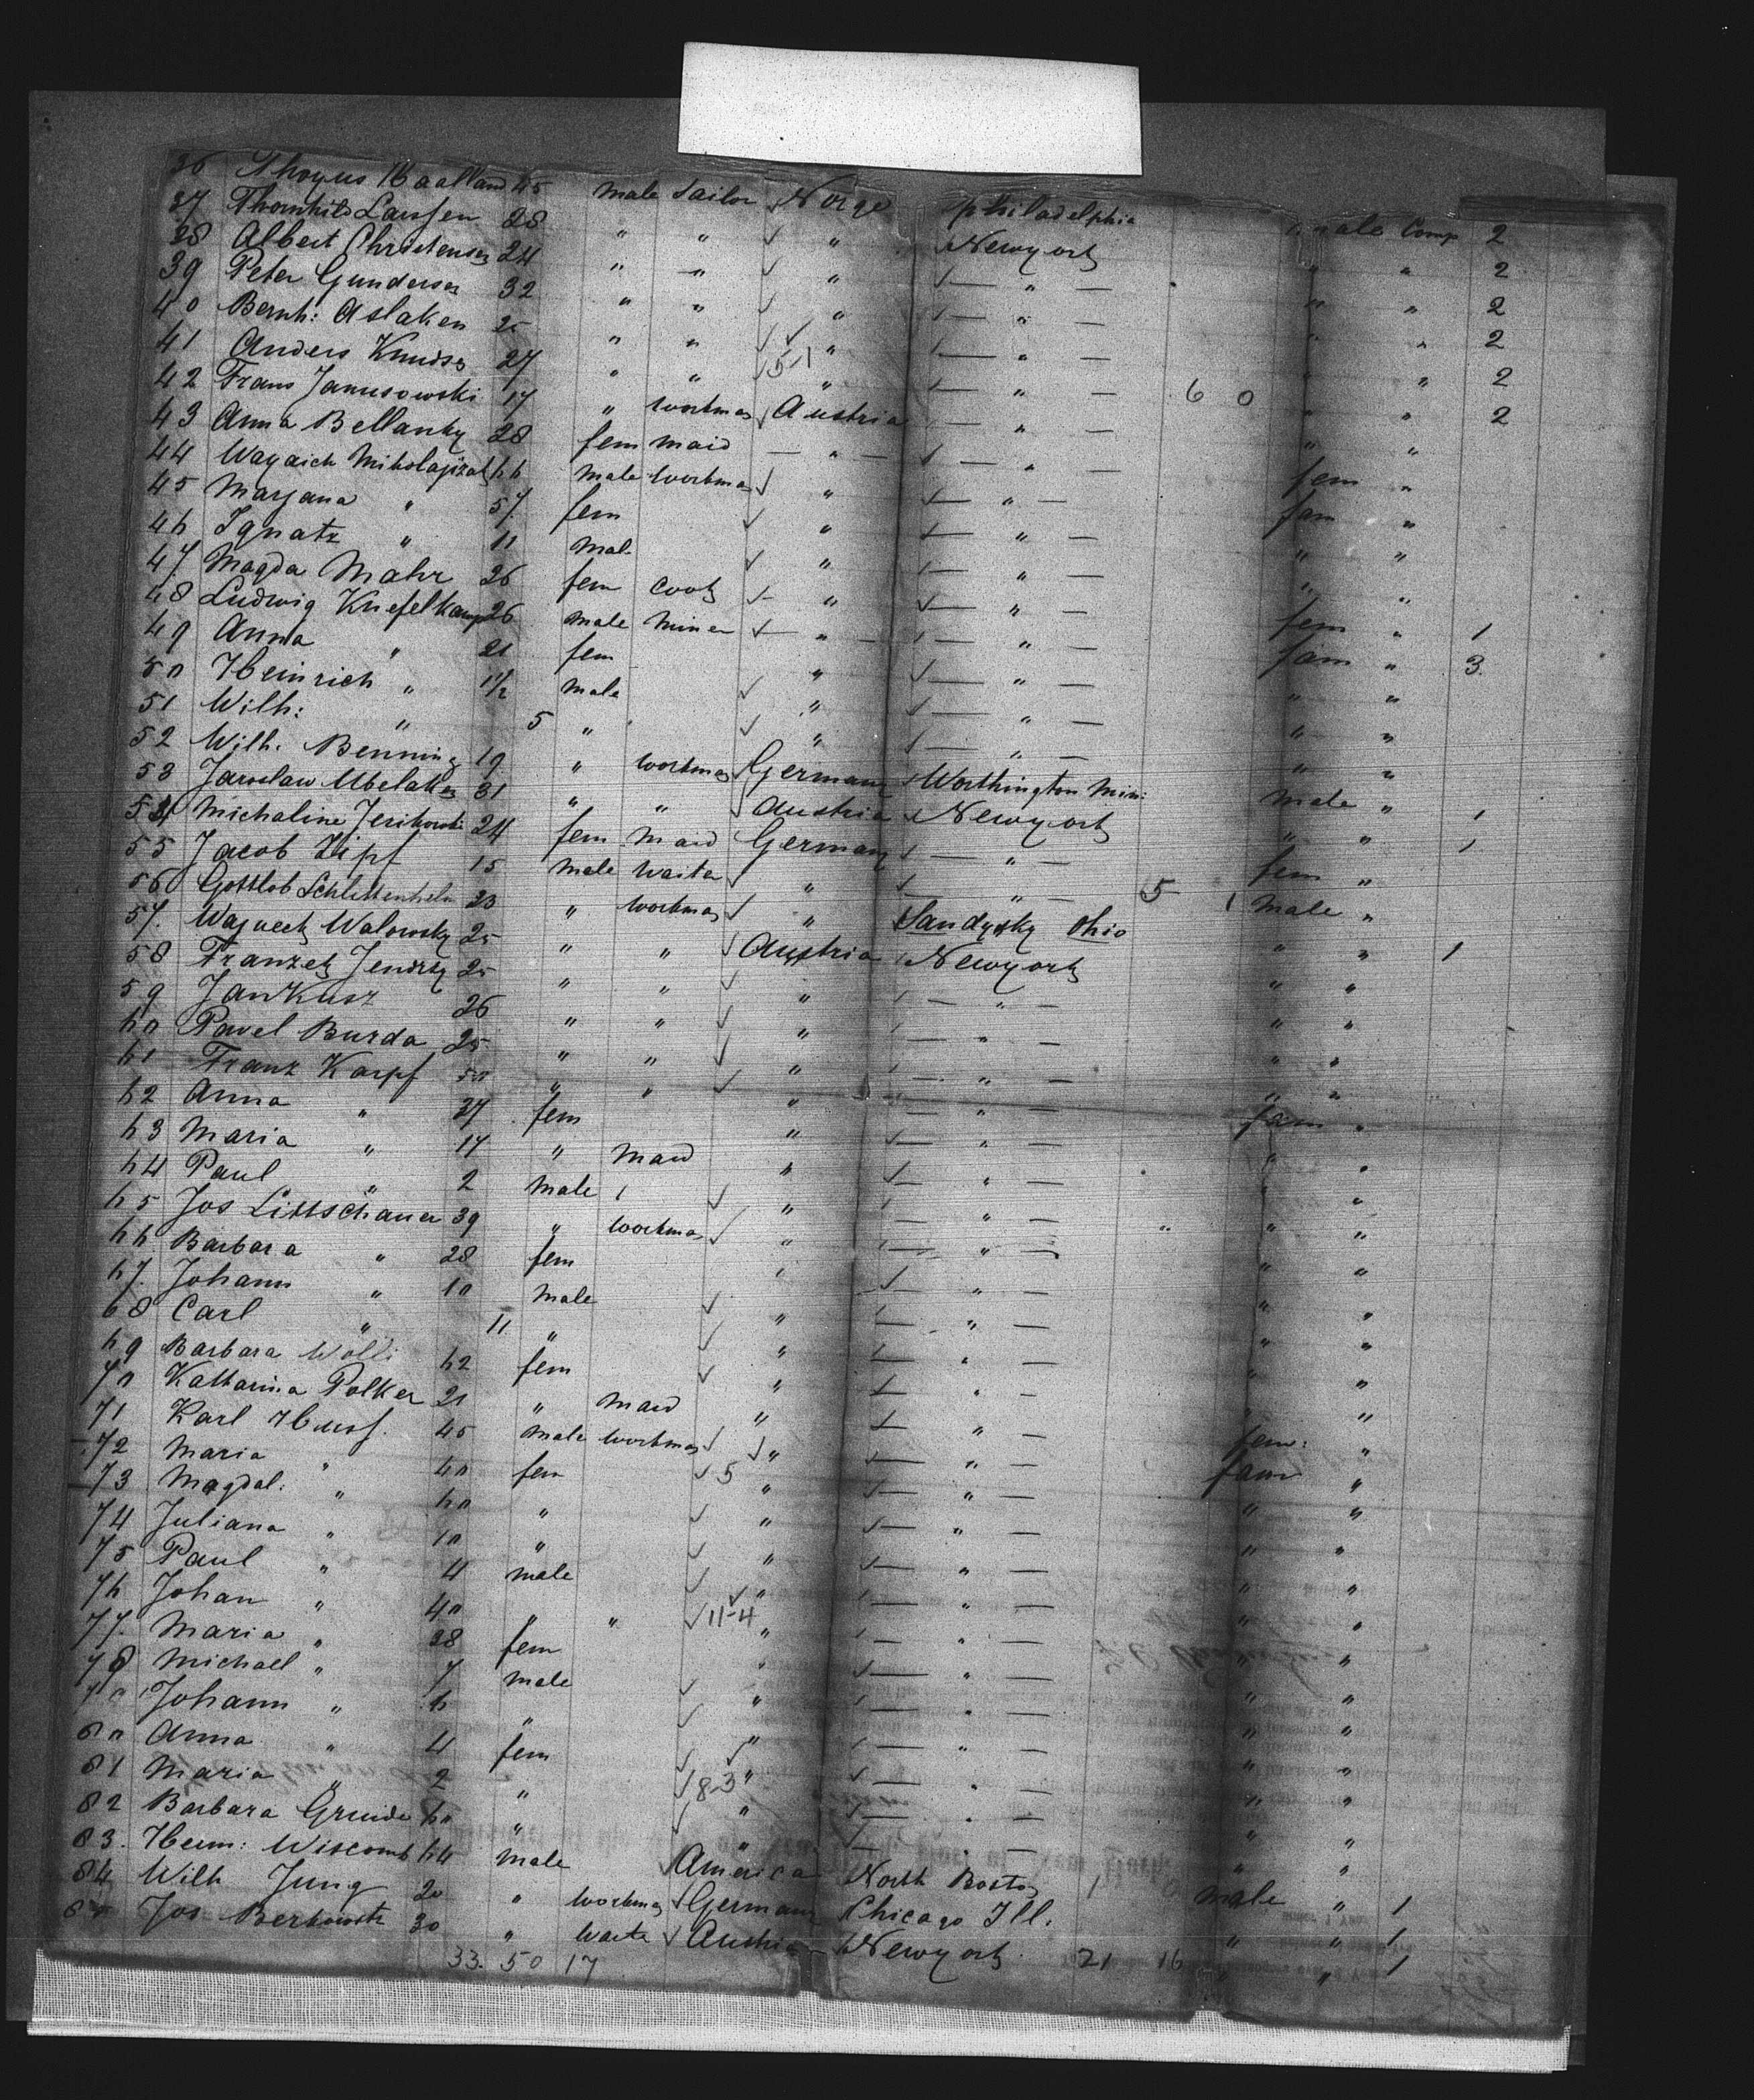 36 Thoyus Haalland 45 male Sailor Norge philadelphia male Comp 2
37 Thornhild Laufsen 28 " " " Newyork " " 2
38 Albert Christensen 24 " " " — " — " " 2
39 Peter Gundersen 32 " " " — " — " " 2
40 Bernh: Aslaken 25 " " " — " — " " 2
41 Anders Knudsen 27 " " 5-1 " — " — 6 0 " " 2
42 Frans Janusowski 17 " workman Austria — " — " "
43 Anna Bellanky 28 fem maid — " — — " — fem "
44 Waydich Mikolajizak 66 male workman " — " — fam "
45 Marjana " 57 fem " — " — " "
46 Ignatz " 11 mal. " — " — " "
47 Magda Mahr 26 fem cook " — " — fem " 1
48 Ludwig Kniefelkamp 26 male Miner — " — — " — fam " 3
49 Anna " 21 fem " — " — " "
50 Heinrich " 1 1/2 male " — " — " "
51 Wilh: " 5 " " — " — " "
52 Wilh. Benning 19 " workman Germany Worthington Min: male " 1
53 Jaroslaw Ubelaker 31 " " Austria Newyork " " 1
54 Michaline Jerikowski 24 fem maid Germany — " — fem "
55 Jacob Zipf 15 male waiter " — " — 5 1 male "
56 Gottlob Schlittenhelm 23 " workman " Sandusky Ohio " " 1
57. Wajneck Walowsky 25 " " Austria Newyork " "
58 Franzek Jendrsy 25 " " " — " — " "
59 Jan Kusz 26 " " " — " — " "
60 Pavel Burda 25 " " " — " — " "
61 Franz Karpf 50 " " " — " — fam "
62 Anna " 37 fem " — " — " "
63 Maria " 17 " maid " — " — " "
64 Paul " 2 male " — " — " "
65 Jos Littschauer 39 " workman " — " — " "
66 Barbara " 28 fem " — " — " "
67. Johann " 10 male " — " — " "
68 Carl " 11 " " — " — " "
69 Barbara Wölli 62 fem " — " — " "
70 Katharina Polker 21 " maid " — " — fem: "
71 Karl Huss. 45 male workman " — " — fam "
72 Maria " 40 fem 5 " — " — " "
73 Magdal: " 60 " " — " — " "
74 Juliana " 10 " " — " — " "
75 Paul " 4 male " — " — " "
76 Johan " 40 " " 11-4 " — " — " "
77. Maria " 38 fem " — " — " "
78 Michael " 7 male " — " — " "
79 Johann " 6 " " — " — " "
80 Anna " 4 fem " — " — " "
81 Maria " 2 " 8-3 " — " — " "
82 Barbara Gruide 60 " " — " — " "
83. Herm: Wiscomb 64 male America North Boston 1 0 male " 1
84 Wilh Jung 20 " workman Germany Chicago Ill. " " 1
85 Jos Berkowitz 30 " waiter Austria Newyork " " 1
33. 50 17 21 16